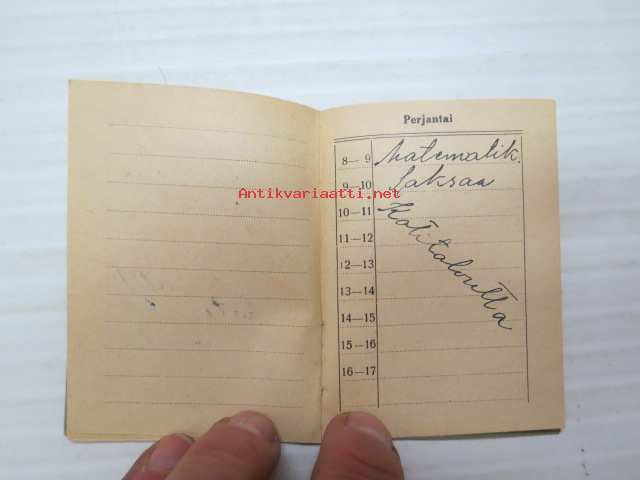 Perjantai
8—9 Matematik.
9—10 Saksaa
10—11 Kotitaloutta
11—12
12—13
13—14
14—15
15—16
16—17
Antikvariaatti.net